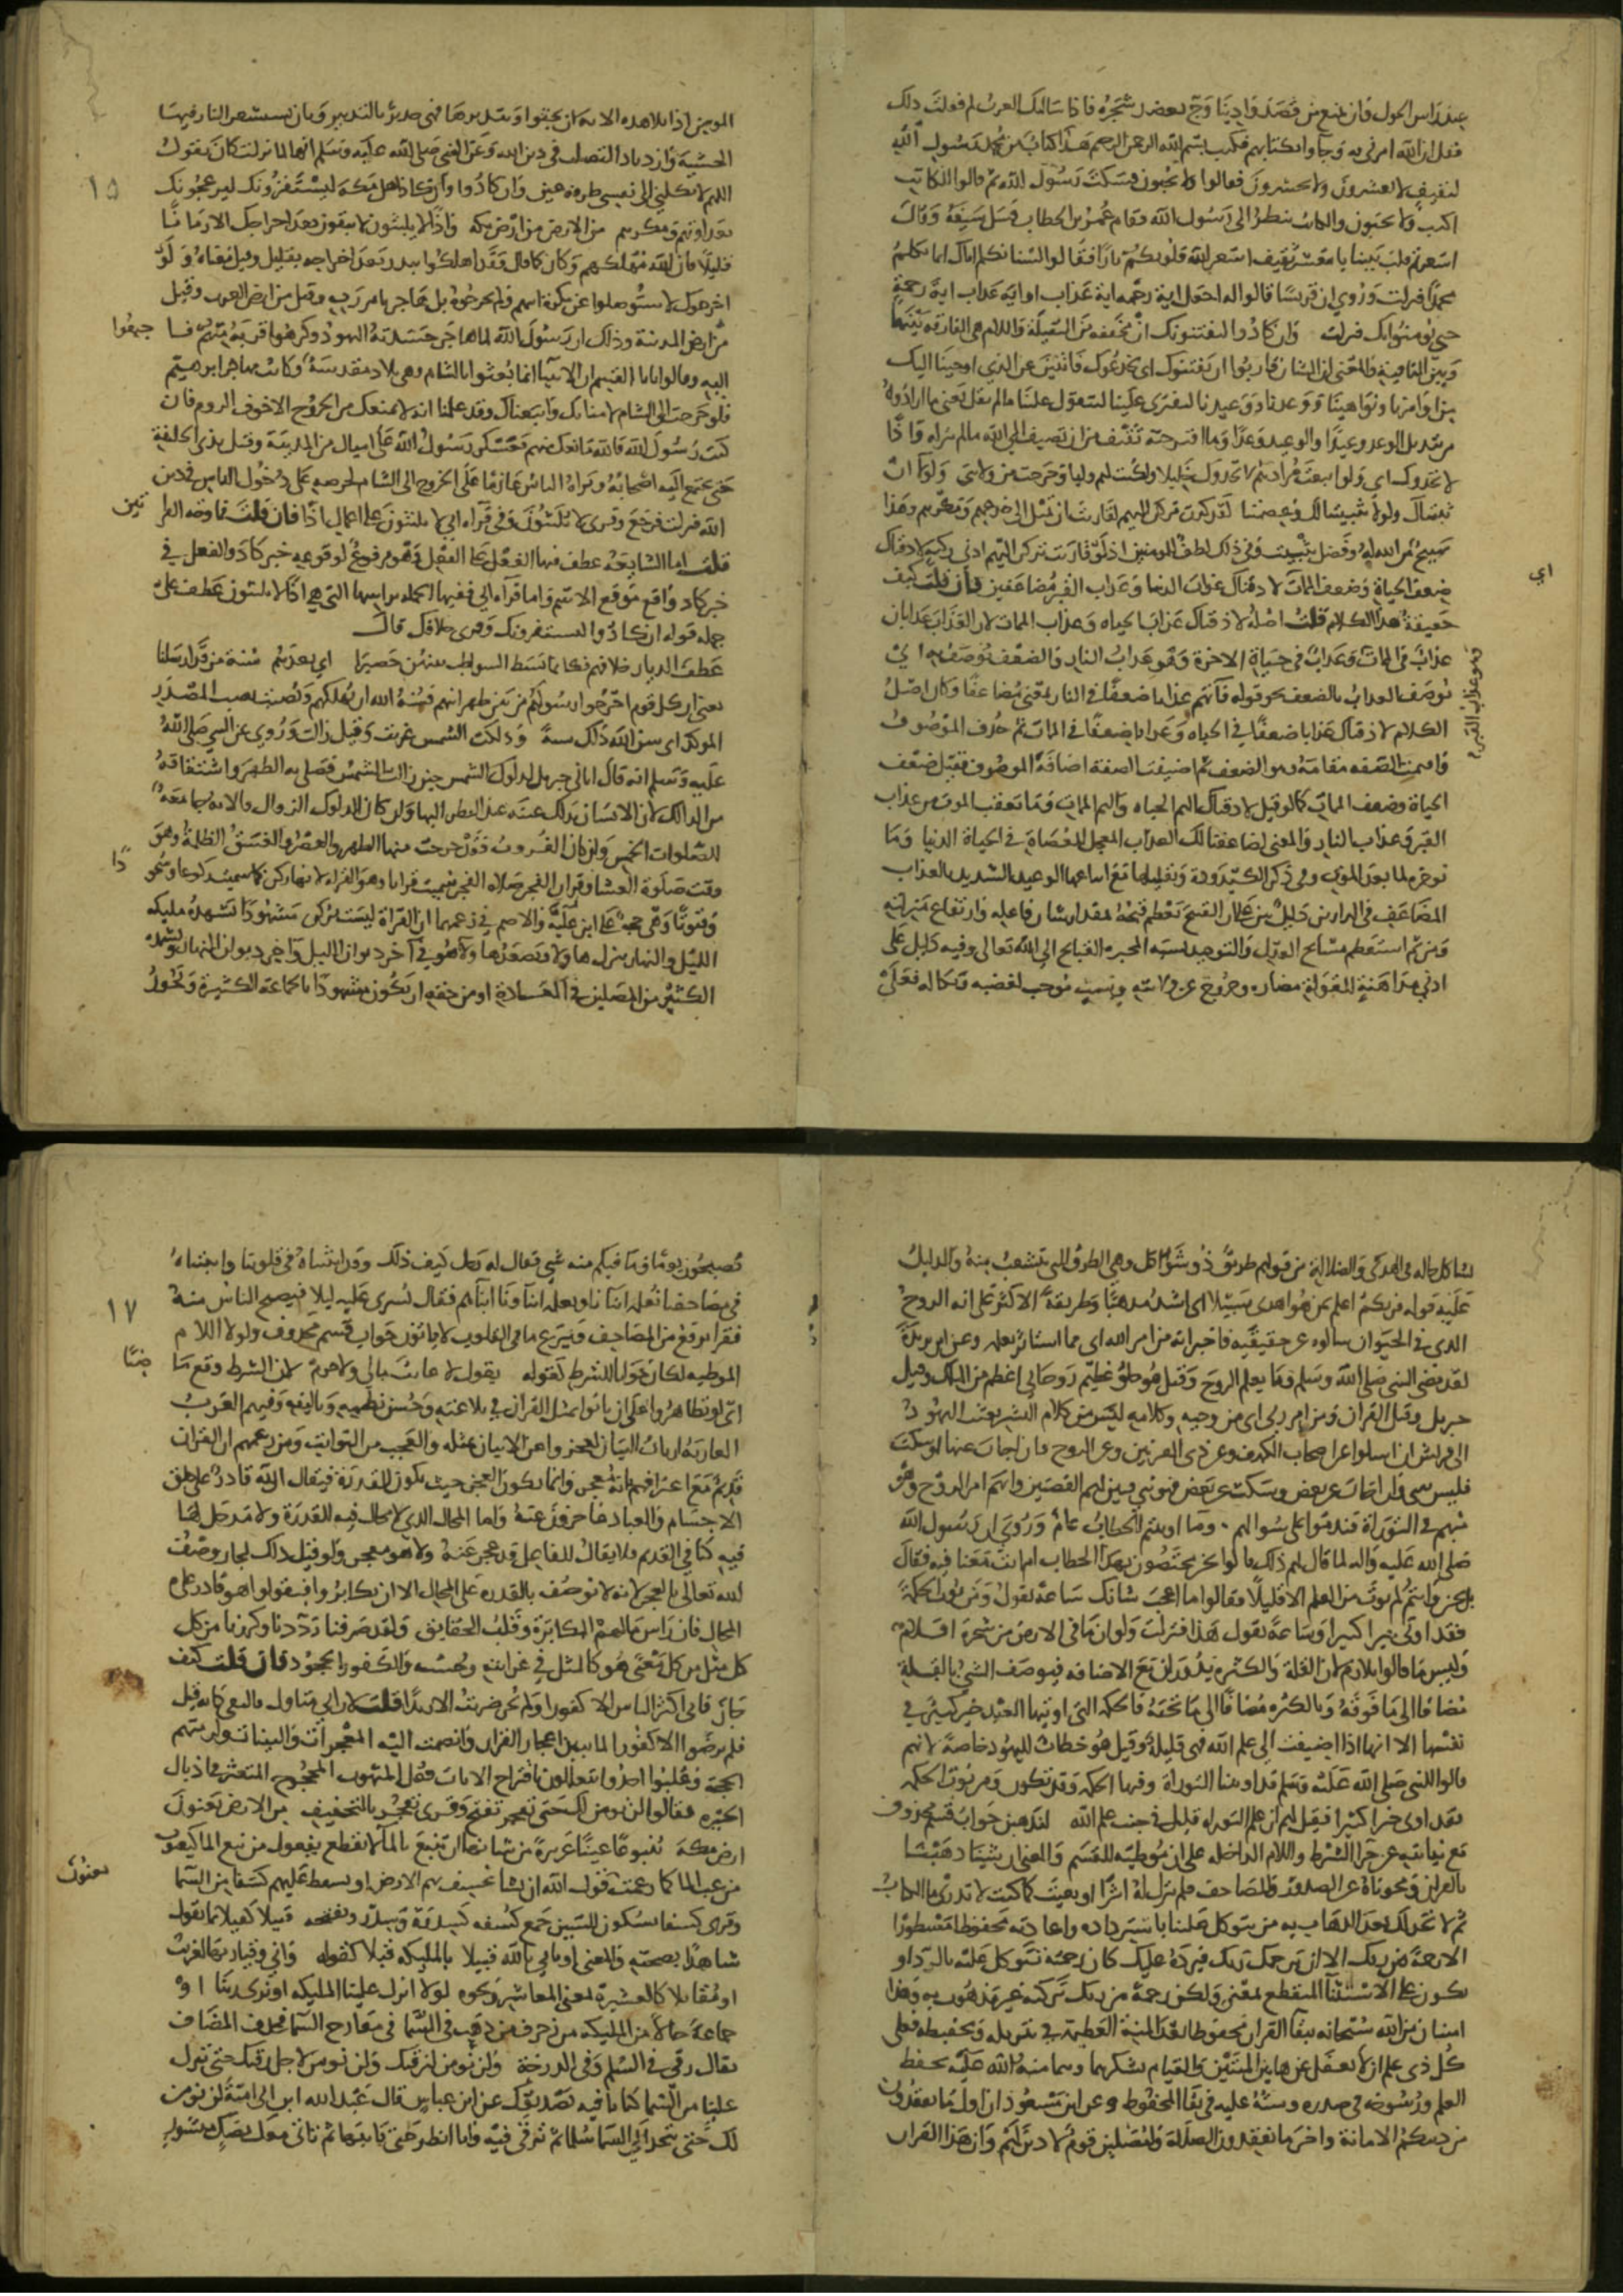 عند راس الحول وان تمنع من قصد وادينا وج بعضد شجره فاذا سالتك العرب لم فعلت ذلك
فقل ان الله امرني به وجاوا بكتابهم فكتب بسم الله الرحمن الرحيم هذا كتاب من محمد رسول الله
لثقيف لا يعشرون ولا يحشرون فقالوا ولا يجبون فسكت رسول الله ثم قالوا للكاتب
اكتب ولا يجبون والكاتب ينظر الى رسول الله فقام عمر بن الخطاب فسل سيفه وقال
اسعرتم قلب نبينا يا معشر ثقيف اسعر الله قلوبكم نارا فقالوا لسنا نكلم اياك انما نكلم
محمدا فنزلت وروي ان قريشا قالوا له اجعل اية رحمه اية عذاب واية عذاب اية رحمة
حتى نومن بك فنزلت وان كادوا ليفتنونك ان مخففه من الثقيلة واللام هي الفارقه بينها
وبين النافية والمعنى ان الشان قاربوا ان يفتنوك اي يخدعوك فاتنين عن الذي اوحينا اليك
من اوامرنا ونواهينا ووعدنا ووعيدنا لتفتري علينا لتتقول علينا ما لم نقل يعني ما ارادوه
من تبديل الوعد وعيدا والوعيد وعدا وما اقترحته ثقيف من ان تضيف الى الله ما لم ينزله واذا
لاتخذوك اي ولو اتبعت مرادهم لاتخذوك خليلا ولكنت لهم وليا وخرجت من ولايتي ولولا ان
ثبتناك ولولا تثبيتنا لك وعصمتنا لقد كدت تركن اليهم لقاربت ان تميل الى خدعهم ومكرهم وهذا
تهييج من الله له وفضل تثبيت وفي ذلك لطف للمومنين اذا لو قاربت تركن اليهم ادنى ركنة لاذقناك
ضعف الحياة وضعف الممات لاذقناك عذاب الدنيا وعذاب القبر مضاعفين فان قلت كيف
حقيقة هذا الكلام قلت اصله لاذقناك عذاب الحياه وعذاب الممات لان العذاب عذابان
عذاب في الممات وعذاب في حياة الاخرة وهو عذاب النار والضعف يوصف به
اي
وهو عذاب القبر
يوصف العذاب بالضعف نحو قوله فآتهم عذابا ضعفا في النار بمعنى مضاعفا وكان اصل
الكلام لاذقناك عذابا ضعفا في الحياه وعذابا ضعفا في الممات ثم حذف الموصوف
واقيمت الصفه مقامه وهو الضعف ثم اضيفت الصفة اضافة الموصوف فقيل ضعف
الحياة وضعف الممات كما لو قيل لاذقناك اليم الحياه واليم الممات وما تعقب الموت من عذاب
القبر وعذاب النار والمعنى لضاعفنا لك العذاب المعجل للعصاة في الحياة الدنيا وما
نوخره لما بعد الموت وفي ذكر الكيدودة وتقليلها مع اتباعها الوعيد الشديد بالعذاب
المضاعف في الدارين دليل بين على ان القبيح يعظم قبحه بمقدار شان فاعله وارتفاع منزلته
ومن ثم استعظم مشايخ العدل والتوحيد نسبه المجبره القبايح الى الله تعالى وفيه دليل على
ادنى مداهنة للغواة مضاده وخروج عن ولايته وسبب موجب لغضبه ونكاله فعلى
المومن اذا تلا هذه الايه ان يجثو ويتدبرها فهي جديرة بالتدبير وبان يستشعر الناظر فيها
الخشية وازدياد التصلب في دين الله وعن النبي صلى الله عليه وسلم انها لما نزلت كان يقول
١٥
اللهم لا تكلني الى نفسي طرفة عين وان كادوا وان كاد اهل مكة ليستفزونك ليزعجونك
بعداوتهم ومكرهم من الارض من ارض مكه واذا لا يلبثون لا يبقون بعد اخراجك الا زمانا
قليلا فان الله مهلكهم وكان كما قال وقد اهلكوا ببدر بعد اخراجه بقليل وقيل معناه ولو
اخرجوك لاستوصلوا عن بكرة ابيهم ولم يخرجوه بل هاجر بامر ربه وقيل من ارض العرب وقيل
من ارض المدينة وذلك ان رسول الله لما هاجر حسدته اليهود وكرهوا قربه منهم فا
جتمعوا
اليه وقالوا يا ابا القسم ان الانبيا انما بعثوا بالشام وهي بلاد مقدسة وكانت مهاجر ابرهيم
فلو خرجت الى الشام لامنا بك واتبعناك وقد علمنا انه لا يمنعك من الخروج الا خوف الروم فان
كنت رسول الله فالله مانعك منهم فعسكر رسول الله على اميال من المدينة وقيل بذي الحليفة
حتى يجتمع اليه اصحابه ويراه الناس عازما على الخروج الى الشام لحرصه على دخول الناس في دين
الله فنزلت فرجع وقرى لا يلبثون وفي قراءه ابي لا يلبثوا على اعمال اذا فان قلت ما وجه القرا
تين
قلت اما الشايعه عطف فيها الفعل على الفعل وهو مرفوع لوقوعه خبر كاد والفعل في
خبر كاد واقع موقع الاسم واما قراءه ابي ففيها الجمله براسها التي هي اذا لا يلبثوا عطف على
جمله قوله ان كادوا ليستفزونك وقرى خلافك قال
عفت الديار خلافهم فكانما بسط الشواطب بينهن حصيرا اي بعدهم سنة من قد ارسلنا
يعني ان كل قوم اخرجوا رسولهم من بين ظهرانيهم فسنة الله ان يهلكهم ونصبت نصب المصدر
الموكد اي سن الله ذلك سنة ودلكت الشمس غربت وقيل زالت وروي عن النبي صلى الله
عليه وسلم انه قال اتاني جبريل لدلوك الشمس حين زالت الشمس فصلى به الظهر واشتقاقه
من الدلك لان الانسان يدلك عينه عند النظر اليها وان كان الدلوك الزوال والايه جامعه
للصلوات الخمس وان كان الغروب فقد خرجت منها الظهر والعصر والغسق الظلمة وهو
وقت صلوة العشا وقران الفجر صلاة الفجر سميت قرانا وهو القراه لانها ركن كما سميت ركوعا وسجو
دا
وقنوتا وهي حجة على ابن علية والاصم في زعمهما ان القراة ليست بركن مشهودا تشهده مليكه
الليل والنهار ينزل هاولا ويصعد هاولا فهو في آخر ديوان الليل واخر ديوان النهار او يشهده
الكثير من المصلين في العادة او من حقه ان يكون مشهودا بالجماعة الكثيرة ويجوز
يشاكل حاله في الهدى والضلالة من قولهم طريق ذو شواكل وهي الطرق التي تتشعب منه والدليل
عليه قوله فربكم اعلم بمن هو اهدى سبيلا اي اشد مذهبا وطريقة الاكثر على انه الروح
الذي في الحيوان سالوه عن حقيقته فاخبر انه من امر الله اي مما استاثر بعلمه وعن ابن بريدة
لقد مضى النبي صلى الله وسلم وما يعلم الروح وقيل هو خلق عظيم روحاني اعظم من الملك وقيل
جبريل وقيل القران ومن امر ربي اي من وحيه وكلامه ليس من كلام البشر بعثت اليهود
الى قريش ان اسلوا عن اصحاب الكهف وعن ذي القرنين وعن الروح فان اجاب عنها او سكت
فليس بنبي وان اجاب عن بعض وسكت عن بعض فهو نبي فبين لهم القصتين وابهم امر الروح وهو
مبهم في التوراة فندموا على سوالهم وما اوتيتم الخطاب عام وروي ان رسول الله
صلى الله عليه واله لما قال لهم ذلك قالوا نحن مختصون بهذا الخطاب ام انت معنا فيه فقال
بل نحن وانتم لم نوت من العلم الا قليلا فقالوا ما اعجب شانك ساعة تقول ومن يوت الحكمة
فقد اوتي خيرا كثيرا وساعة تقول هذا فنزلت ولو ان ما في الارض من شجرة اقلام
وليس ما قالوا بلازم لان القلة والكثرة يدوران مع الاضافه فيوصف الشي بالقلة
مضافا الى ما فوقه وبالكثره مضافا الى ما تحته فالحكمه التي اوتيها العبد خير كثير في
نفسها الا انها اذا اضيفت الى علم الله فهي قليلة وقيل هو خطاب لليهود خاصة لانهم
قالوا للنبي صلى الله عليه وسلم قد اوتينا التوراة وفيها الحكمه وقد تلوت ومن يوت الحكمه
فقد اوتي خيرا كثيرا فقيل لهم ان علم التوراه قليل في جنب علم الله لنذهبن جواب قسم محذوف
مع نيابته عن جزا الشرط واللام الداخله على ان موطيه للقسم والمعنى ان شينا ذهبنا
بالقران ومحوناه عن الصدور والمصاحف فلم نترك له اثرا وبقيت كما كنت لا تدري ما الكتاب
ثم لا تجد لك بعد الذهاب به من يتوكل علينا باسترداده واعادته محفوظا مسطورا
الا رحمة من ربك الا ان يرحمك ربك فيرده عليك كان رحمته تتوكل عليه بالرد او
يكون على الاستثنا المنقطع بمعنى ولكن رحمة من ربك تركته غير مذهوب به وهذا
امتنان من الله سبحانه ببقا القران محفوظا بعد المنة العظيمة في تنزيله وتحفيظه فعلى
كل ذي علم ان لا يغفل عن هاتين المنتين والقيام بشكرهما وهما منة الله عليه بحفظ
العلم ورسوخه في صدره ومنته عليه في بقا المحفوظ وعن ابن مسعود ان اول ما تفقدون
من دينكم الامانة واخر ما تفقدون الصلاة وليصلين قوم لا دين لهم وان هذا القران
تصبحون يوما وما فيكم منه شي فقال له رجل كيف ذلك وقد اثبتناه في قلوبنا واثبتناه
١٧
في مصاحفنا نعلمه ابنانا ويعلمه ابناونا ابناهم فقال يسرى عليه ليلا فيصبح الناس منه
فقرا ترفع من المصاحف وينزع ما في القلوب لا ياتون جواب قسم محذوف ولولا اللام
الموطيه لكان جوابا للشرط كقوله يقول لا غايب مالي ولا حرم لان الشرط وقع ما
ضيا
اي لو تظاهروا على ان ياتوا بمثل القران في بلاغته وحسن نظمه وتاليفه وفيهم العرب
العاربة ارباب البيان لعجزوا عن الاتيان بمثله والعجب من النوابت ومن زعمهم ان القران
قديم مع اعترافهم بانه معجز وانما يكون العجز حيث يكون القدرة فيقال الله قادر على خلق
الاجسام والعباد عاجزون عنه واما المحال الذي لا مجال فيه للقدرة ولا مدخل لها
فيه كثاني القديم فلا يقال للفاعل قد عجز عنه ولا هو معجز ولو قيل ذلك لجاز وصف
الله تعالى بالعجز لانه لا يوصف بالقدره على المحال الا ان يكابروا فيقولوا هو قادر على
المحال فان راس مالهم المكابرة وقلب الحقايق ولقد صرفنا رددنا وكررنا من كل
كل مثل من كل معنى هو كالمثل في غرابته وحسنه والكفور الجحود فان قلت كيف
جاز فابى اكثر الناس الا كفورا ولم يجز ضربت الا زيدا قلت لان ابى متاول بالنفي كانه قيل
فلم يرضوا الا كفورا لما تبين اعجاز القران وانضمت اليه المعجزات والبينات ولزمتهم
الحجة وغلبوا اخذوا يتعللون باقتراح الايات فعل المبهوت المحجوج المتعثر في اذيال
الحيره فقالوا لن نومن لك حتى تفجر تفتح وقرى تفجر بالتخفيف من الارض يعنون
ارض مكة ينبوعا عينا غزيرة من شانها ان تنبع بالما لا تقطع يفعول من نبع الما كيعبوب
يعنون
من عب الما كما زعمت قول الله ان نشا نخسف بهم الارض او نسقط عليهم كسفا من السما
وقرى كسفا بسكون السين جمع كسفه كسدرة وسدر وبفتحه قبيلا كفيلا بما تقول
شاهدا بصحته والمعنى او تاتي بالله قبيلا وبالمليكه قبيلا كقوله فاني وقيار بها لغريب
او مقابلا كالعشير بمعنى المعاشر ونحوه لولا انزل علينا المليكه او نرى ربنا او
جماعة حالا من المليكه من زخرف من ذهب في السما في معارج السما فحذف المضاف
يقال رقى في السلم وفي الدرجة ولن نومن لرقيك ولن نومن لاجل رقيك حتى تنزل
علينا من السما كتابا فيه تصديقك عن ابن عباس قال عبد الله ابن ابي امية لن نومن
لك حتى تتخذ الى السما سلما ثم ترقى فيه وانا انظر حتى تاتيها ثم تاتي معك بصك منشور